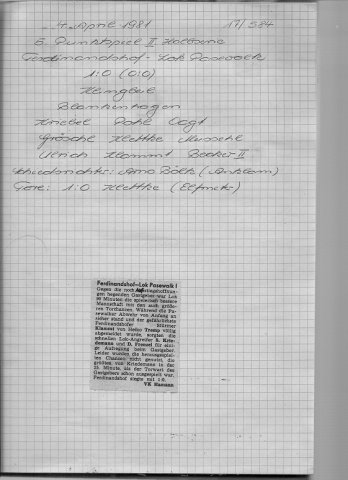 4. April 1981 17/584
5. Punktspiel II Halbserie
Ferdinandshof - Lok Pasewalk
1:0 (0:0)
Klingbeil
Blankenhagen
Kriebel Pohl Vogt
Grösche Klettke Muschel
Ulrich Klammt Becker II
Schiedsrichter: Arno Bölk (Anklam)
Tore: 1:0 Klettke (Elfmeter)
Ferdinandshof—Lok Pasewalk I
Gegen die noch Aufstiegshoffnun-
gen hegenden Gastgeber war Lok
90 Minuten die spielerisch bessere
Mannschaft mit den auch größe-
ren Torchancen. Während die Pa-
sewalker Abwehr von Anfang an
sicher stand und der gefährlichste
Ferdinandshofer Stürmer
Klammt von Heiko Tremp völlig
abgemeldet wurde, sorgten die
schnellen Lok-Angreifer S. Krie-
demann und D. Frenzel für eini-
ge Aufregung beim Gastgeber.
Leider wurden die herausgespiel-
ten Chancen nicht genutzt, die
größten von Kriedemann in der
25. Minute, als der Torwart des
Gastgebers schon ausgespielt war.
Ferdinandshof siegte mit 1:0.
VK Hamann